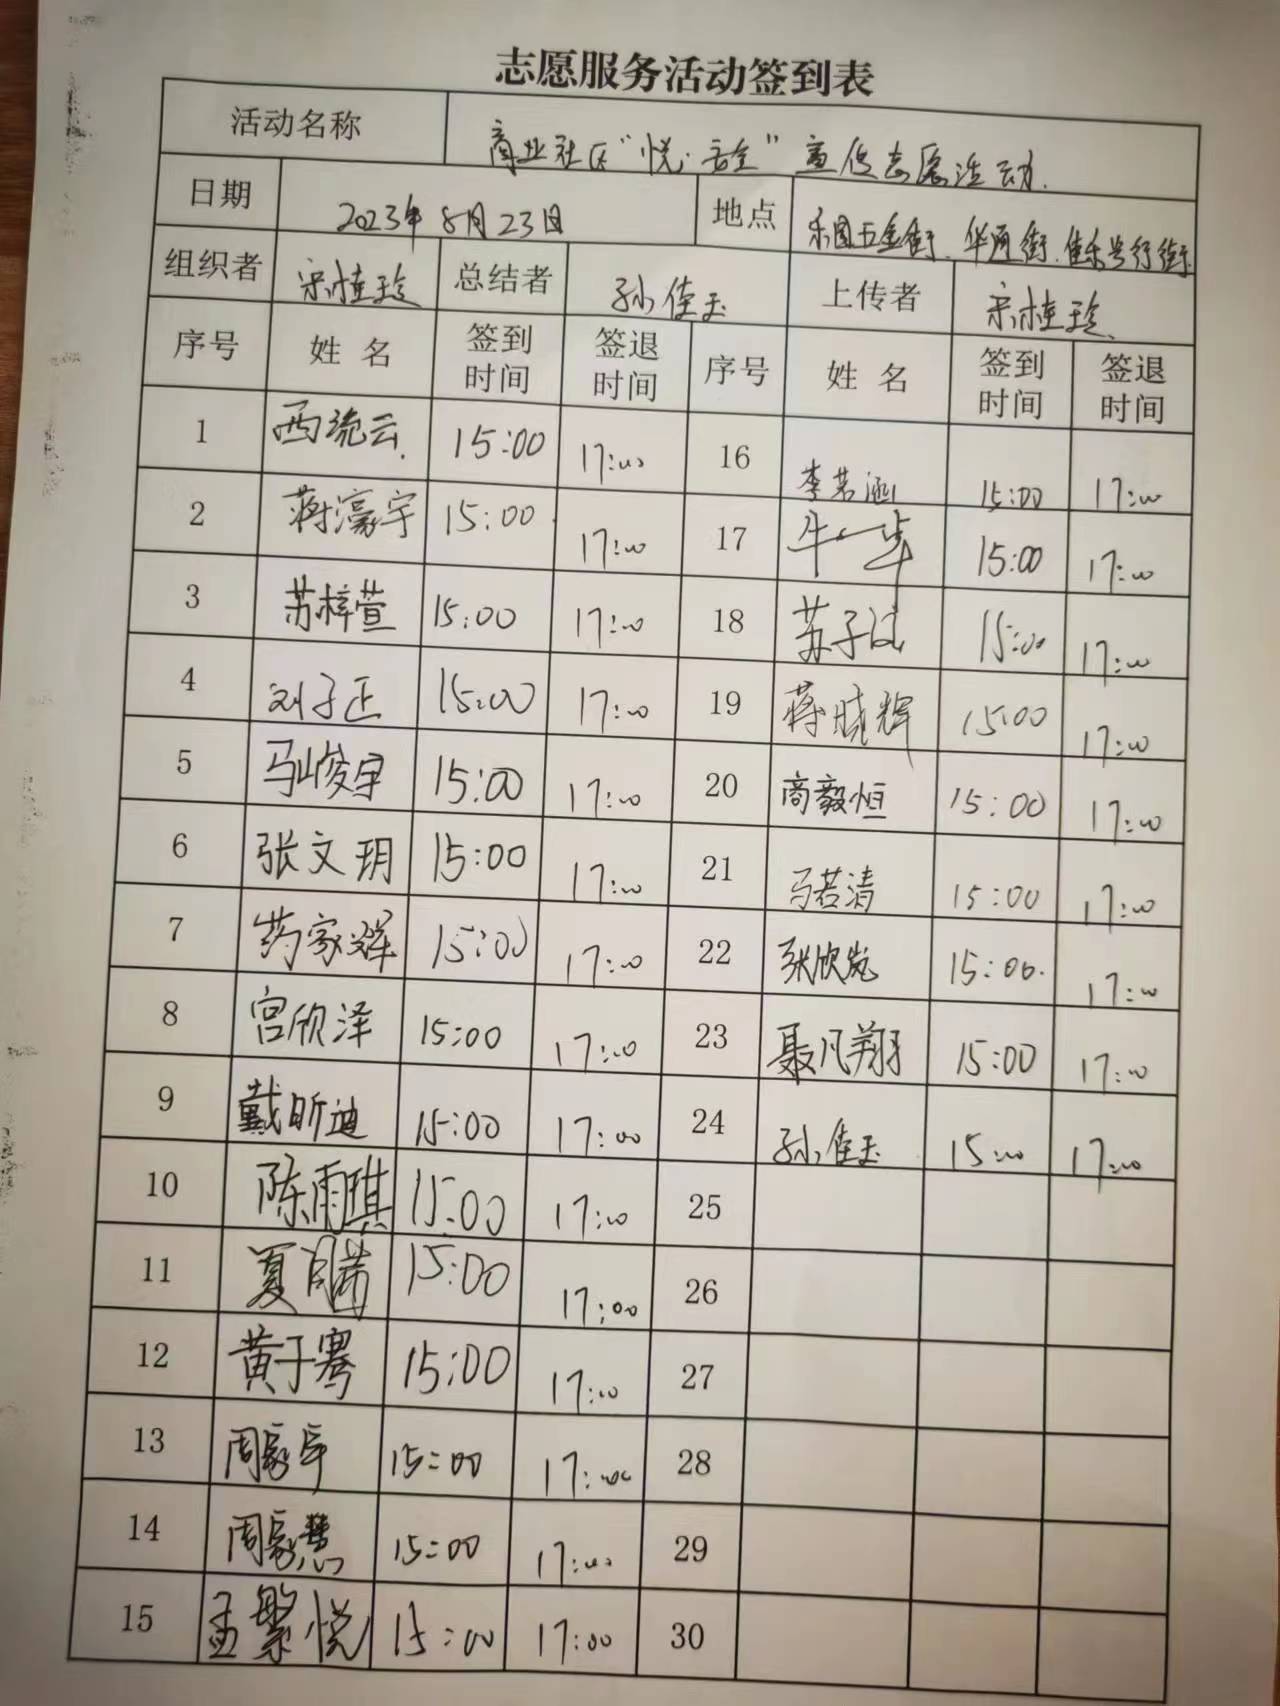 志愿服务活动签到表
活动名称 商业社区“悦·安全”宣传志愿活动.
日期 2023年8月23日 地点 乐园五金街、华通街、佳乐步行街
组织者 宋桂玲 总结者 孙佳玉 上传者 宋桂玲
序号 姓名 签到时间 签退时间 序号 姓名 签到时间 签退时间
1 云 15:00 17:00 16 李若涵 15:00 17:00
2 蒋濠宇 15:00 17:00 17 牛一 15:00 17:00
3 苏梓萱 15:00 17:00 18 苏子 15:00 17:00
4 刘子正 15:00 17:00 19 蒋晓辉 15:00 17:00
5 马峻宇 15:00 17:00 20 商毅恒 15:00 17:00
6 张文玥 15:00 17:00 21 马若清 15:00 17:00
7 药家辉 15:00 17:00 22 张欣岚 15:00. 17:00
8 宫欣泽 15:00 17:00 23 聂凡翔 15:00 17:00
9 戴昕迪 15:00 17:00 24 孙佳玉 15:00 17:00
10 陈雨琪 15:00 17:00 25
11 夏 15:00 17:00 26
12 黄于骞 15:00 17:00 27
13 周家宇 15:00 17:00 28
14 周家慧 15:00 17:00 29
15 孟繁悦 15:00 17:00 30